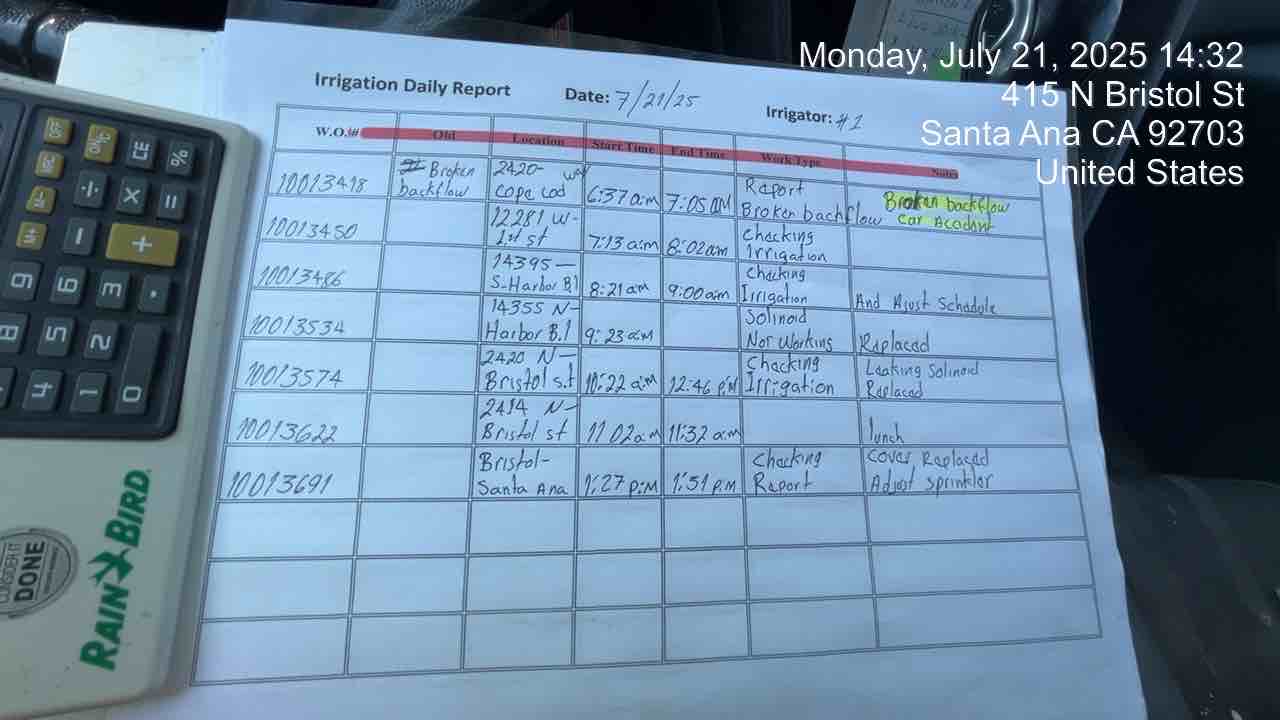 Monday, July 21, 2025 14:32
415 N Bristol St
Santa Ana CA 92703
United States
Irrigation Daily Report Date: 7/21/25 Irrigator: #1
W.O.# Old Location Start Time End Time Work Type Notes
10013418 Broken backflow 2420- Cope Cod 6:37 a:m 7:05 AM Report Broken backflow Broken backflow Car Acadant
10013450 12281 W- 1st st 7:13 a:m 8:02am Checking Irrigation
10013486 14395- S-Harbor B.l 8:21am 9:00am Checking Irrigation And Ajust Schadule
10013534 14355 N- Harbor B.l 9:23 a:m Solinoid Nor Working Replaced
10013574 2420 N- Bristol s.t 10:22 a:m 12:46 P:M Checking Irrigation Leaking Solinoid Replaced
10013622 2414 N- Bristol st 11:02 a:m 11:32 a:m lunch
10013691 Bristol- Santa Ana 1:27 P:M 1:51 P:M Checking Report Cover Replaced Adjust sprinklar
CE %
÷ × =
- +
9 6 3 .
8 5 2
4 1 0
RAIN BIRD
CONSIDER IT
DONE